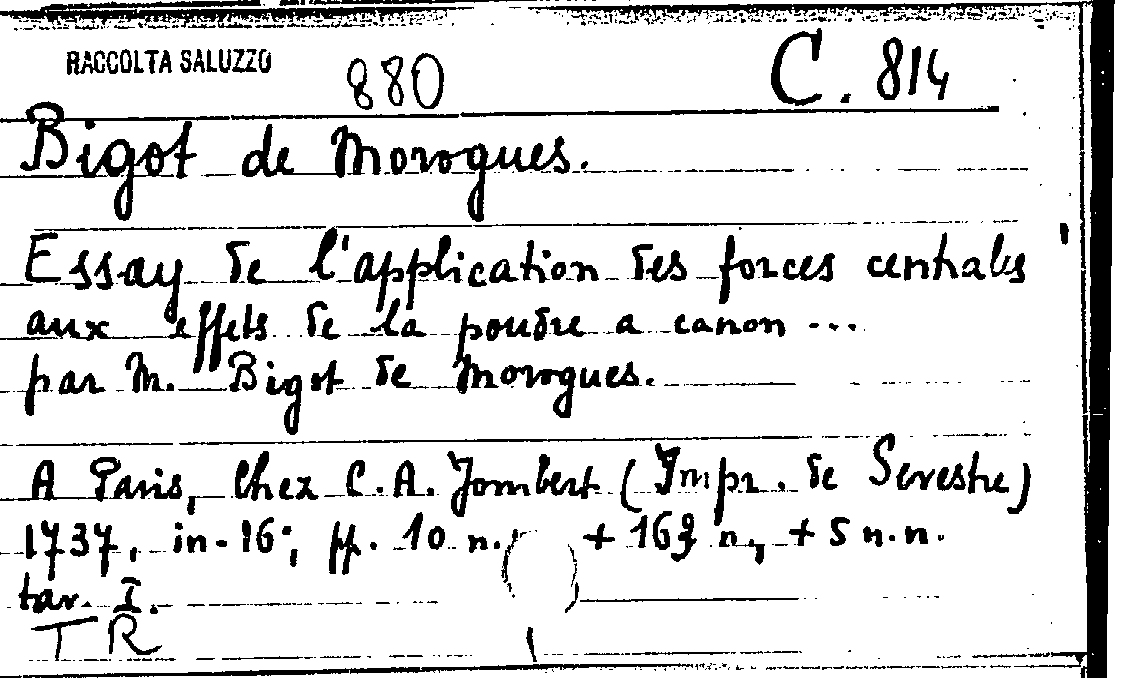 RACCOLTA SALUZZO 880 C. 814
Bigot de Morogues.
Essay de l'application des forces centrales
aux effets de la poudre a canon ...
par M. Bigot de Morogues.
A Paris, Chez C.A. Jombert (Impr. de Sevestre)
1737, in-16°, pp. 10 n. + 163 n, + 5 n.n.
tav. I.
TR